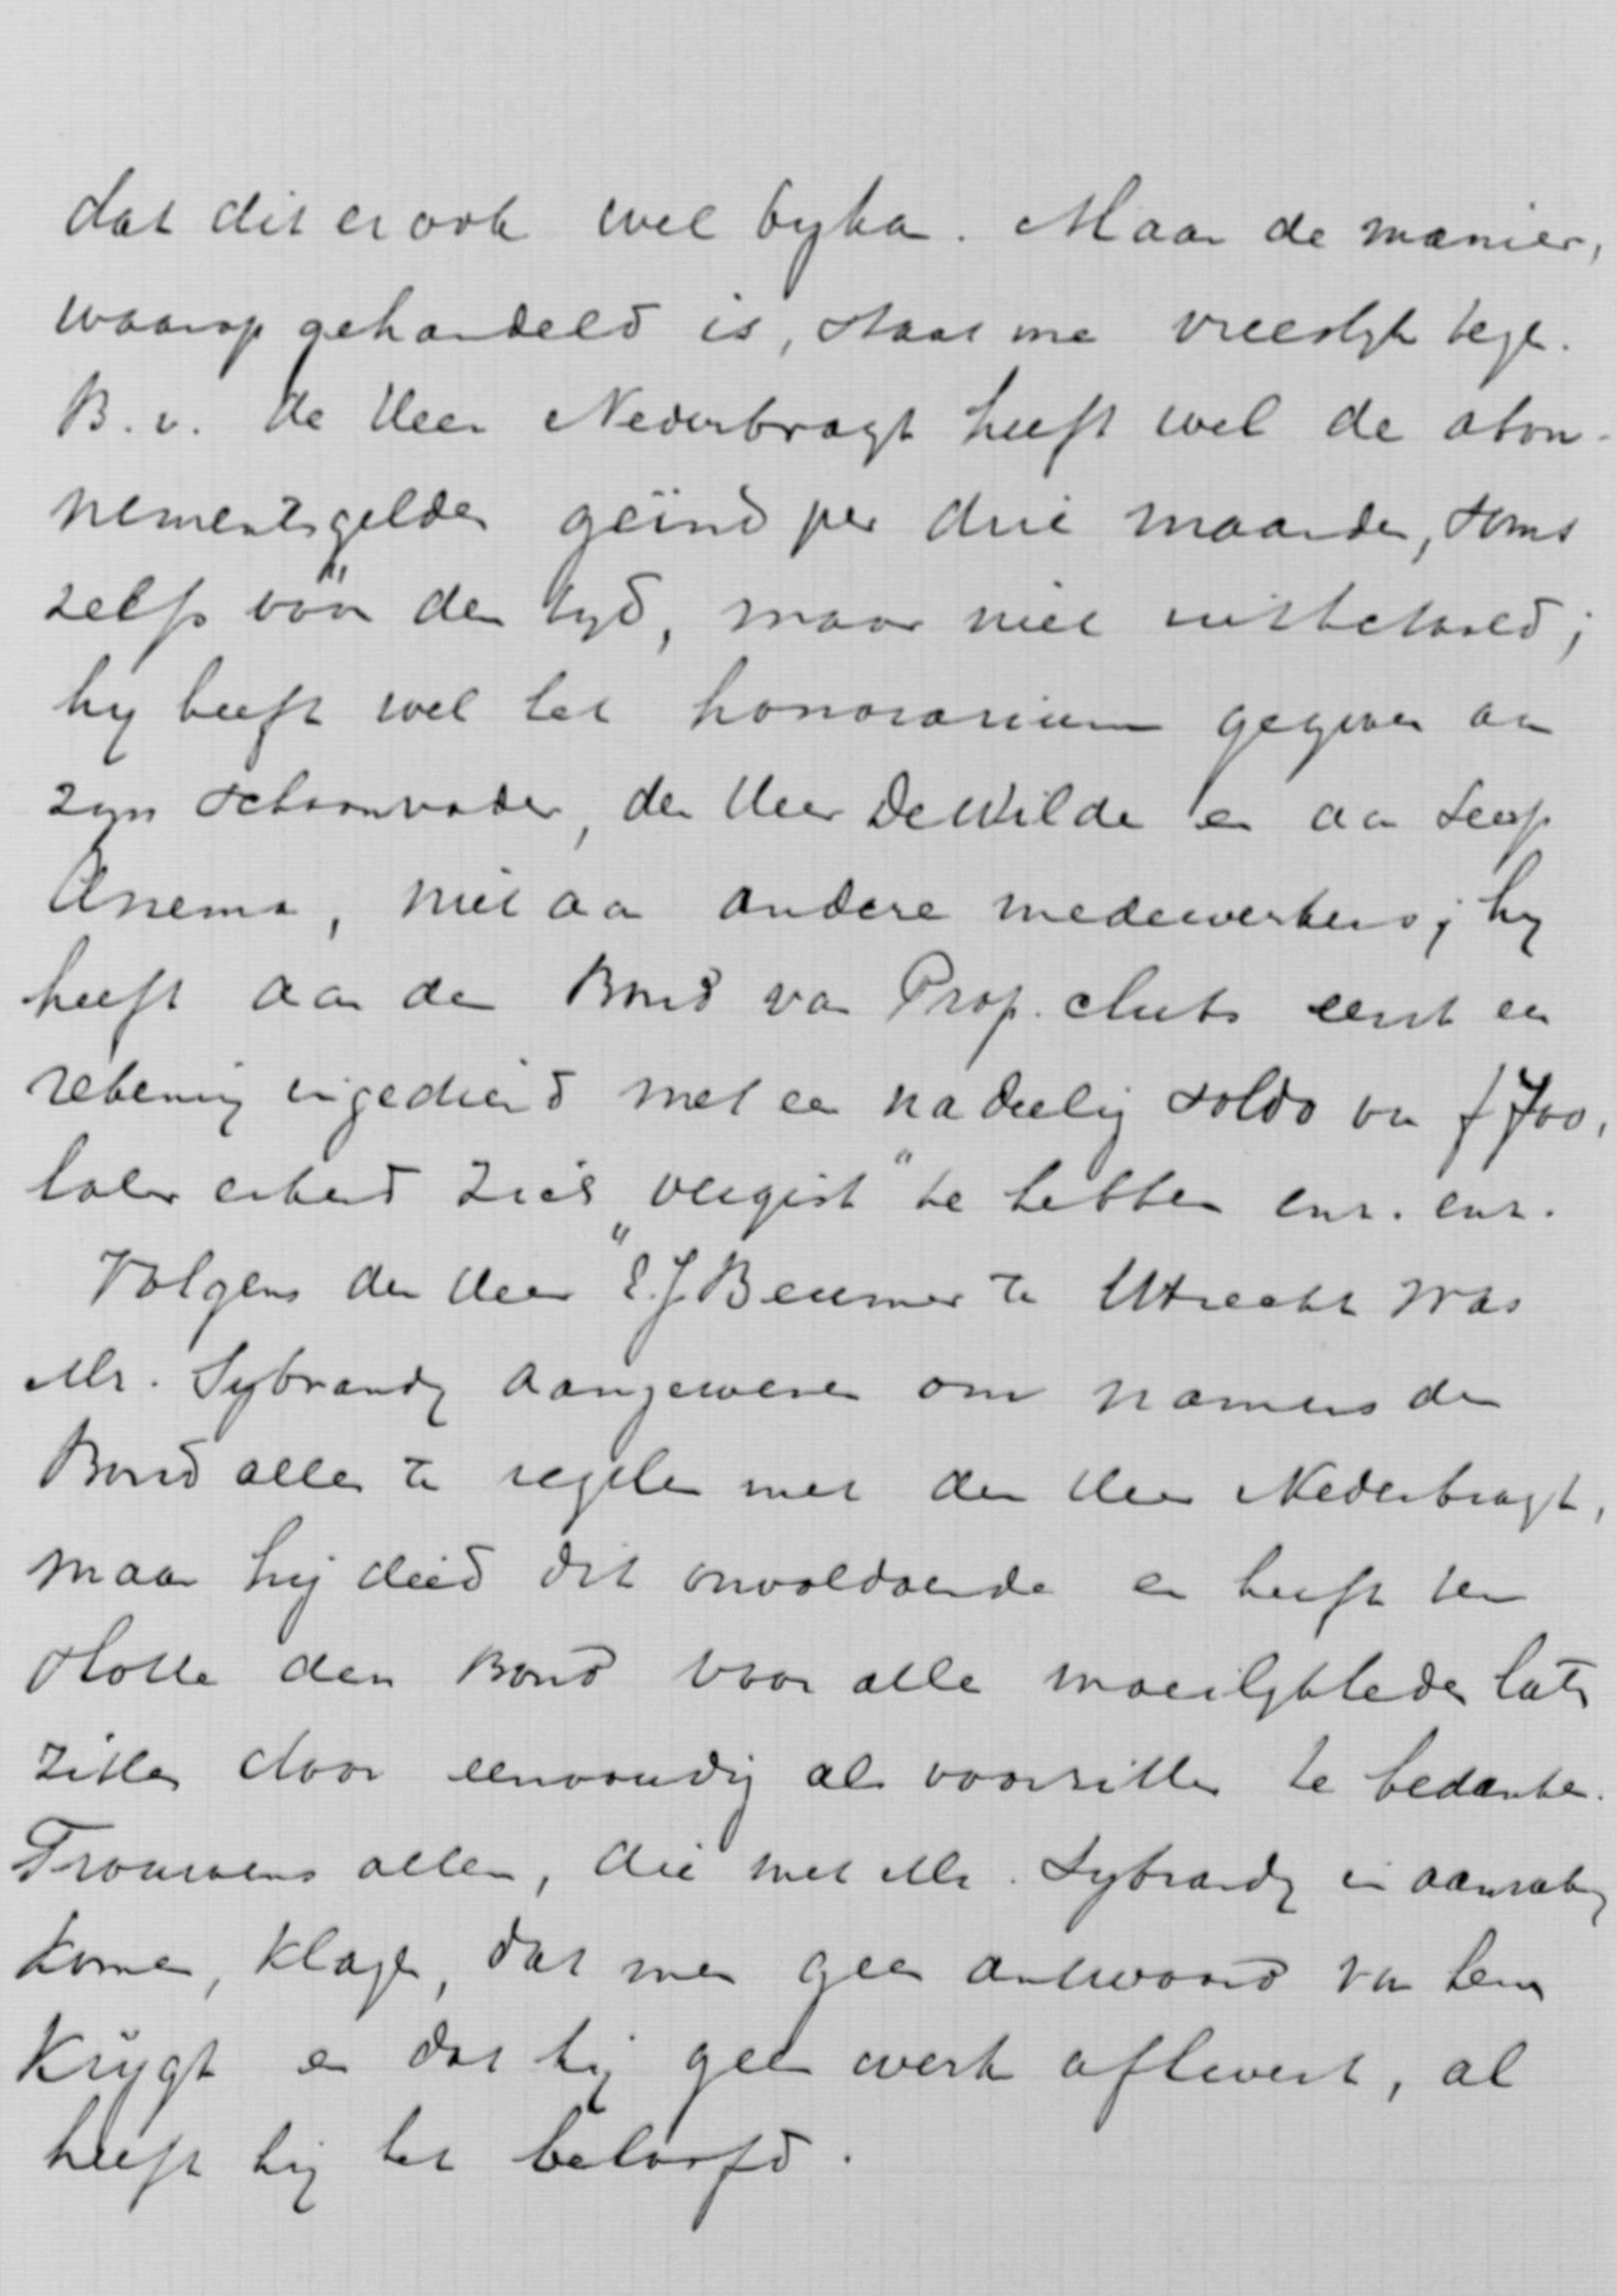 dat dit er ook wel byka. Maar de manier,
waarop gehandeld is, staat me vreeslyk tegen.
B.v. de Heer Nederbragt heeft wel de abon-
nementsgelden geïnd per drie maanden, soms
zelfs vóór den tyd, maar niet uitbetaald;
hy heeft wel het honorarium gegeven aan
zyn schoonvader, den Heer De Wilde en aan Seerp
Anema, niet aan andere medewerkers; hy
heeft aan den Bond van Prop. clubs eerst een
rekening ingediend met een nadeelig saldo van f 700,
later erkend zich „vergist" te hebben enz. enz.
Volgens den Heer E.J. Beumer te Utrecht was
Mr. Sybrandy aangewezen om namens den
Bond alles te regelen met den Heer Nederbragt,
maar hij deed dit onvoldoende en heeft ten
slotte den Bond voor alle moeilykheden laten
zitten door eenvoudig als voorzitter te bedanken.
Trouwens allen, die met Mr. Sybrandy in aanraking
komen, klagen, dat men geen antwoord van hem
krijgt en dat hij geen werk aflevert, al
heeft hij het beloofd.